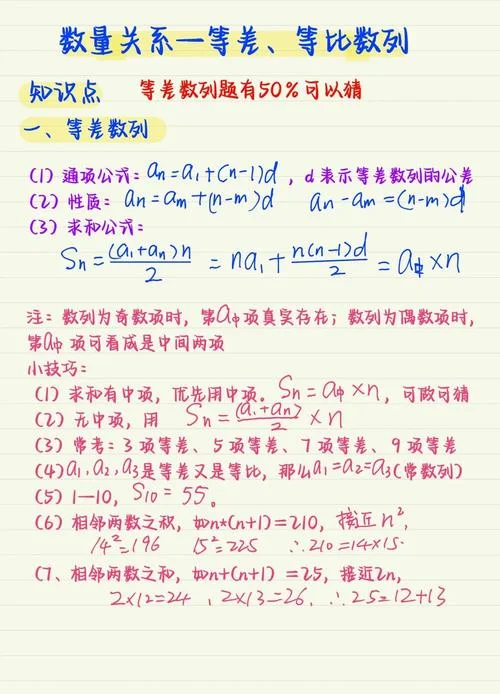 数量关系—等差、等比数列
知识点 等差数列题有50%可以猜
一、等差数列
(1) 通项公式: an=a1+(n-1)d ，d 表示等差数列的公差
(2) 性质: an=am+(n-m)d an-am=(n-m)d
(3) 求和公式:
Sn=(a1+an)n/2 =na1+n(n-1)d/2=a中×n
注: 数列为奇数项时，第a中项真实存在；数列为偶数项时，
第a中 项可看成是中间两项
小技巧:
(1) 求和有中项，优先用中项。Sn=a中×n，可做可猜
(2) 无中项，用 Sn=(a1+an)/2×n
(3) 常考: 3 项等差、5 项等差、7 项等差、9 项等差
(4)a1,a2,a3是等差又是等比，那么a1=a2=a3(常数列)
(5) 1—10，S10=55。
(6) 相邻两数之积，如n*(n+1)=210，接近n²，
14²=196 15²=225 ∴210=14×15.
(7、相邻两数之和，如n+(n+1) =25，接近2n，
2×12=24 ，2×13=26，∴25=12+13